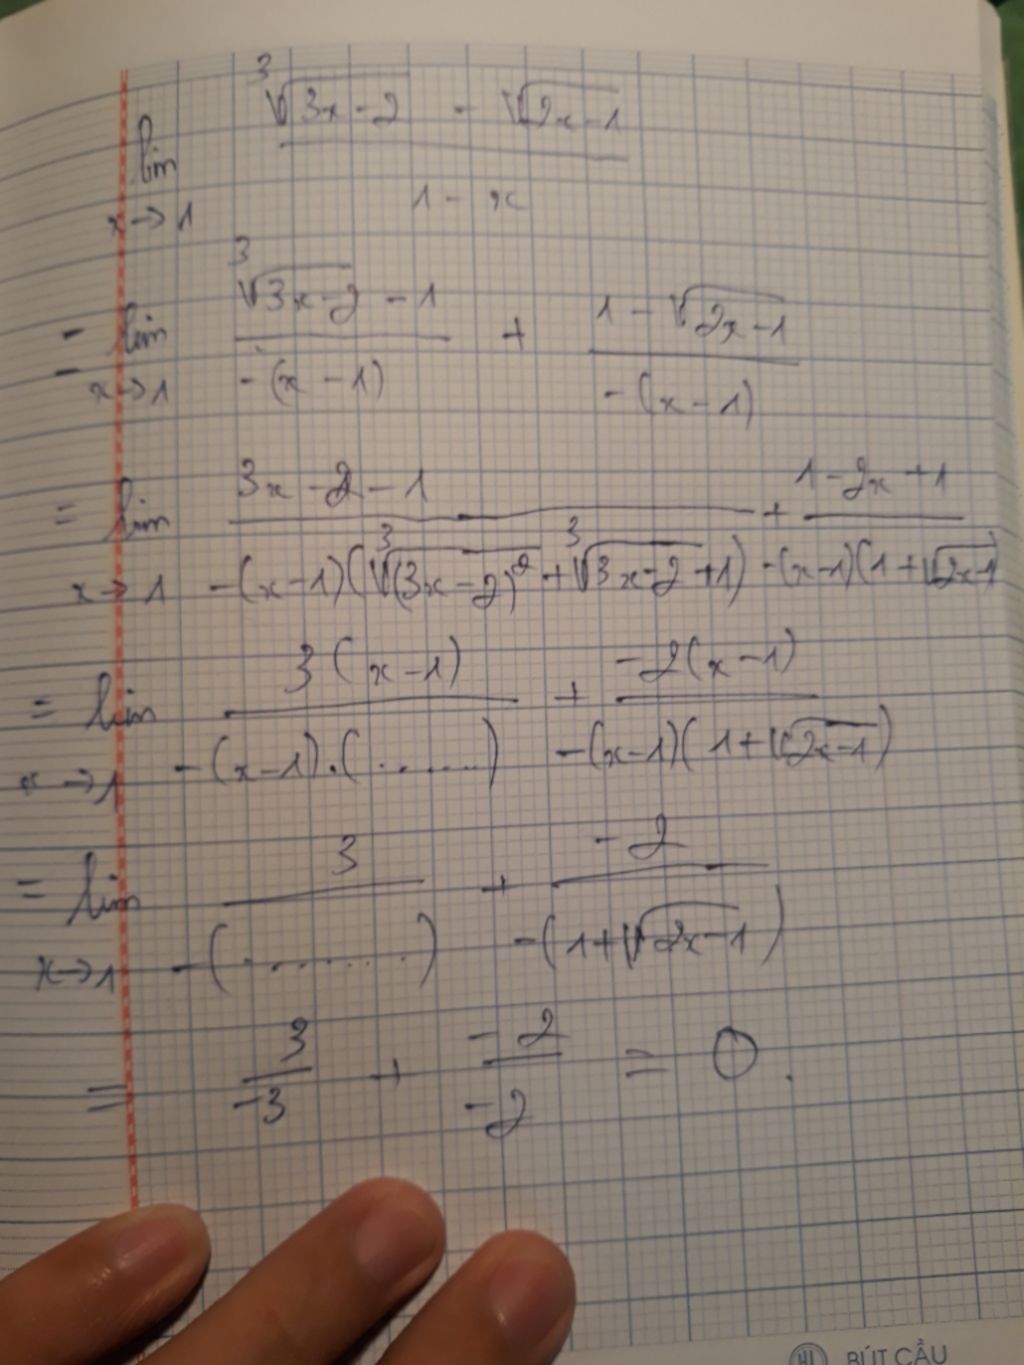 lim x→1 (∛(3x-2) - √(2x-1)) / (1-x)
= lim x→1 (∛(3x-2) - 1) / (-(x-1)) + (1 - √(2x-1)) / (-(x-1))
= lim x→1 (3x-2-1) / (-(x-1)(∛(3x-2)² + ∛(3x-2) + 1)) + (1-2x+1) / (-(x-1)(1+√(2x-1)))
= lim x→1 3(x-1) / (-(x-1).(.......)) + -2(x-1) / (-(x-1)(1+√(2x-1)))
= lim x→1 3 / (-(........)) + -2 / (-(1+√(2x-1)))
= 3/-3 + -2/-2 = 0.
BÚT CẦU